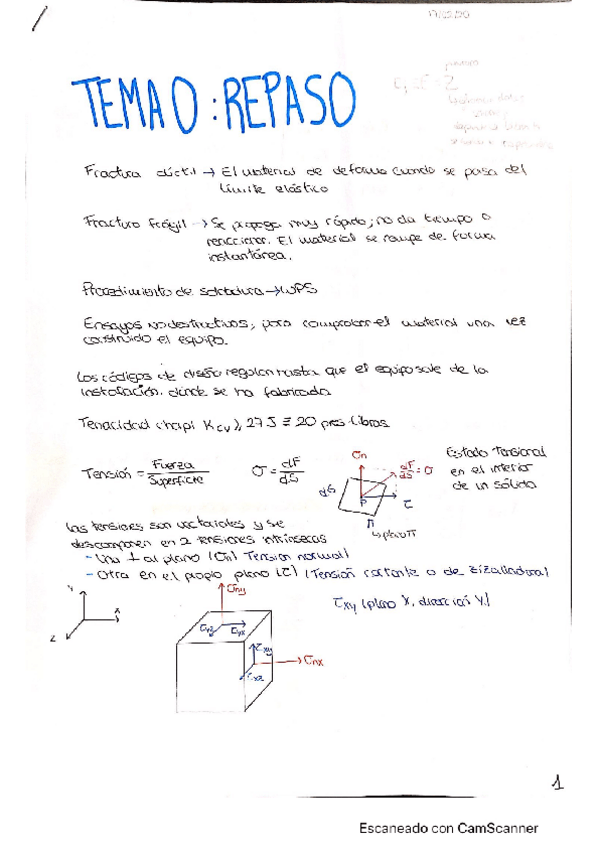 TEMA 0: REPASO
Fractura dúctil → El material de deforma cuando se pasa del
límite elástico
Fractura frágil → Se propaga muy rápido; no da tiempo a
reaccionar. El material se rompe de forma
instantánea.
Procedimiento de soldadura → WPS
Ensayos no destructivos; para comprobar el material una vez
construido el equipo.
Los códigos de diseño regulan hasta que el equipo sale de la
instalación dónde se ha fabricado
Tenacidad charpi Kcv), 27 J ≡ 20 pies·libras
Tensión = Fuerza / Superficie
σ = dF / dS
σn
dF / dS = σ
dS
P
τ
π
↳ plano π
Estado Tensional
en el interior
de un sólido
Las tensiones son vectoriales y se
descomponen en 2 tensiones intrínsecas
- Una ⊥ al plano (σn) Tensión normal)
- Otra en el propio plano (τ) (Tensión cortante o de cizalladura)
τxy (plano X, dirección Y)
Y
X
Z
σny
τyz
τyx
τxy
σnx
τxz
1
Escaneado con CamScanner